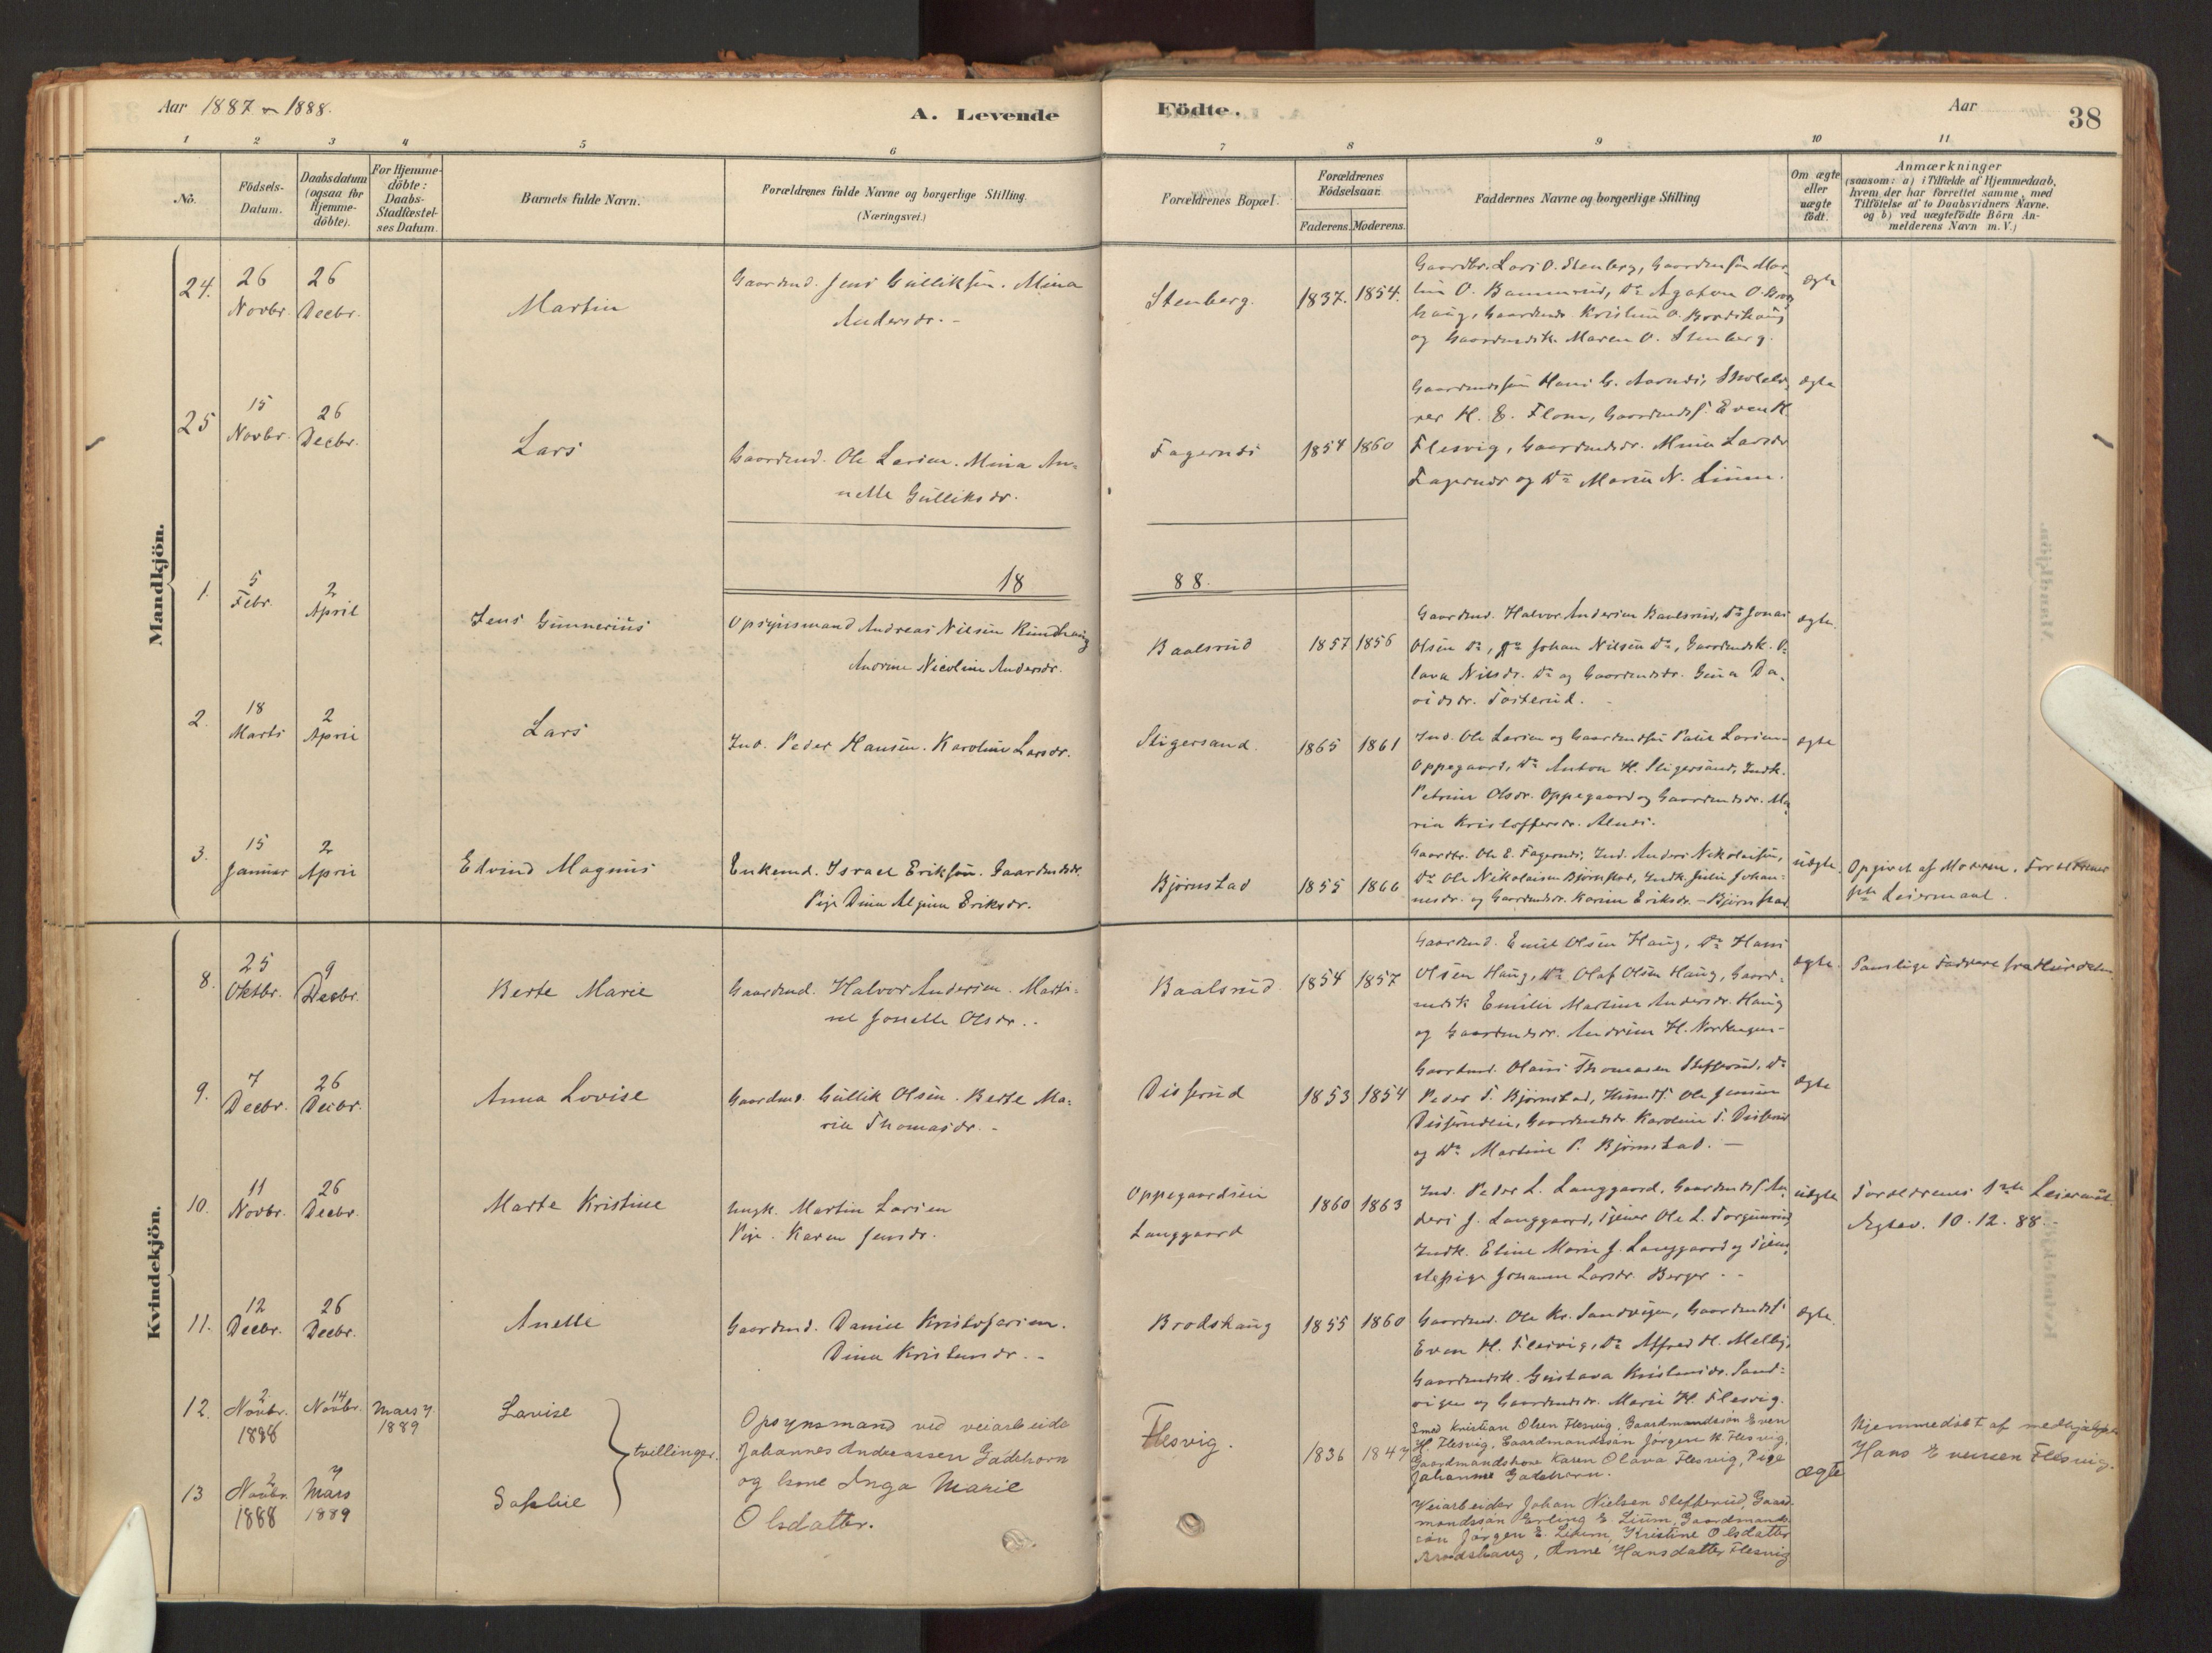 Aar 1887 & 1888.
A. Levende
Födte.
Aar
38
1 2 3 4 5 6 7 8 9 10 11
No.
Födsels-
Datum.
Daabsdatum
(ogsaa for
Hjemme-
döbte).
For Hjemme-
döbte:
Daabs-
Stadfæstel-
ses Datum.
Barnets fulde Navn.
Forældrenes fulde Navne og borgerlige Stilling.
(Næringsvei.)
Forældrenes Bopæl.
Forældrenes
Födselsaar.
Faderens. Moderens.
Faddernes Navne og borgerlige Stilling
Om ægte
eller
uægte
födt.
Anmærkninger
(saasom: a) i Tilfælde af Hjemmedaab,
hvem der har forrettet samme, med
Tilföielse af to Daabsvidners Navne.
og b) ved uægtefödte Börn An-
melderens Navn m. V.)
Mandkjön.
24.
26
Novbr.
26
Decbr.
Martin
Gaardmd. Jens Gulliksen. Mina
Andersdr.-
Stenberg.
1837. 1854.
Gaardbr. Lars O. Stenberg, Gaardmsön Mar-
tin O. Bammerud, do Agaton O. Brods
haug, Gaardmds. Kristine O. Brodshaug
og Gaardmdsk. Maren O. Stenberg.
ægte
25
15
Novbr.
26
Decbr.
Lars
Gaardmd. Ole Larsen. Mina An-
nette Gulliksdr.
Fagernæs
1854 1860
Gaardmdssön Hans G. Aarnæs, Skolelæ-
rer H. E. Flom, Gaardmdss. Even H.
Flesvig, Gaardmdsdr. Mina Larsdr
Fagernæs og do Marie N. Lium.
ægte
18 88.
1.
5
Febr.
2
April
Jens Gunnerius
Opsynsmand Andreas Nilsen Rundhaug
Andrine Nicoline Andersdr.
Baalsrud
1857 1856
Gaardmd. Halvor Andersen Baalsrud, do Jonas
Olsen do, do Johan Nilsen do, Gaardmdsk. O-
lava Nilsdr. do og Gaardmdsdr. Gina Da-
vidsdr. Tosterud.
ægte.
2.
18
Marts
2
April
Lars
Ind. Peder Hansen. Karoline Larsdr.
Stigersand.
1865 1861
Ind. Ole Larsen og Gaardmdssön Paul Larsen
Oppegaard, do Anton H. Stigersand, Indk.
Petrine Olsdr. Oppegaard og Gaardmdsdr. Ma
rie Kristoffersdr. Alnæs.
ægte
3.
15
Januar
2
April
Edvind Magnus
Enkemd. Israel Eriksön. Gaardmdsdr.
Pige Dina Algina Eriksdr.
Björnstad
1855 1866
Gaardbr. Ole E. Fagernæs, Ind. Anders Nikolaisen,
do Ole Nikolaisen Björnstad, Indk. Julie Johan-
nesdr. og Gaardmdsdr. Karine Eriksdr. - Björnstad
uægte.
Opgivet af Moderen. Forældrenes
1ste Leiermaal.
Kvindekjön.
8.
25
Oktbr.
9
Decbr.
Berte Marie
Gaardmd. Halvor Andersen. Marti-
ne Jonette Olsdr..
Baalsrud.
1854 1857
Gaardmd. Emil Olsen Haug, do Hans
Olsen Haug, do Olaf Olsen Haug, Gaard-
mdsk Emilie Martine Andersdr. Haug
og Gaardmdsdr. Andrine H. Nordengen-
ægte.
Samtlige Faddere fra Hurdalen
9.
7
Decbr.
26
Decbr.
Anna Lovise
Gaardmd. Gullik Olsen. Berte Ma-
rie Thomasdr.-
Disserud
1853 1854
Gaardmd. Olaus Thomasen Stefferud, do
Peder T. Björnstad, Husmds. Ole Jensen
Disserudeie, Gaardmdsdr. Karoline T. Disserud
og do Martine P. Björnstad.-
ægte
10.
11
Novbr.
26
Decbr.
Marte Kristine
Ungk. Martin Larsen
Pige. Karen Jensdr.
Oppegaardseie
Langgaard
1860 1863
Ind. Peder L. Langgaard, Gaardmdss. An-
ders J. Langgaard, Tjener Ole L. Torgunrud
Indk. Eline Marie J. Langgaard og Tjene-
stepige Johanne Larsdr. Berger..
uægte
Forældrenes 1ste Leiermaal.
Ægtev. 10.12.88.-
11.
12
Decbr.
26
Decbr.
Anette
Gaardmd. Daniel Kristofersen.
Dina Kristensdr.-
Brodshaug
1855 1860
Gaardmd. Ole Kr. Sandvigen, Gaardmdss.
Even H. Flesvig, do Alfred H. Melby,
Gaardmdsk. Gustava Kristensdr. Sand-
vigen og Gaardmdsdr. Marie H. Flesvig.
ægte.
12.
2.
Novbr.
1888
14
Novbr.
Mars 7
1889
Lavise
tvillinger.
Opsynsmand ved veiarbeide
Johannes Andreassen Gadehorn
og kone Inga Marie
Olsdatter.
Flesvig.
1836 1847
Smed Kristian Olsen Flesvig, Gaardmandssön Even
H. Flesvig, Gaardmandssön Jörgen H. Flesvig,
Gaardmandskone Karen Olava Flesvig, Pige
Johanne Gadehorn.
ægte
Hjemmedöbt af medhjælper
Hans Evensen Flesvig.
13
2
Novbr.
1888
7
Mars
1889
Sofhie
Veiarbeider Johan Nielsen Stefferud, Gaard-
mandssön Erling E. Lium, Gaardmands-
sön Jörgen E. Lium, Kristine Olsdatter
Brodshaug, Anne Hansdatter Flesvig